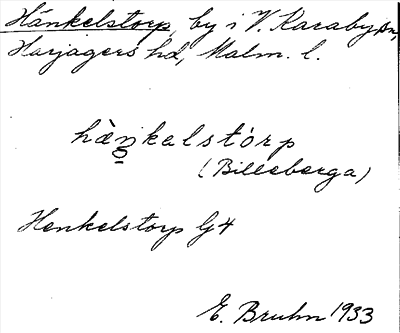 Hänkelstorp, by i V. Karaby sn,
Harjagers hd, Malm. l.
hàŋ̠kalstórp
(Billeberga)
Henkelstorp G4
E. Bruhn 1933